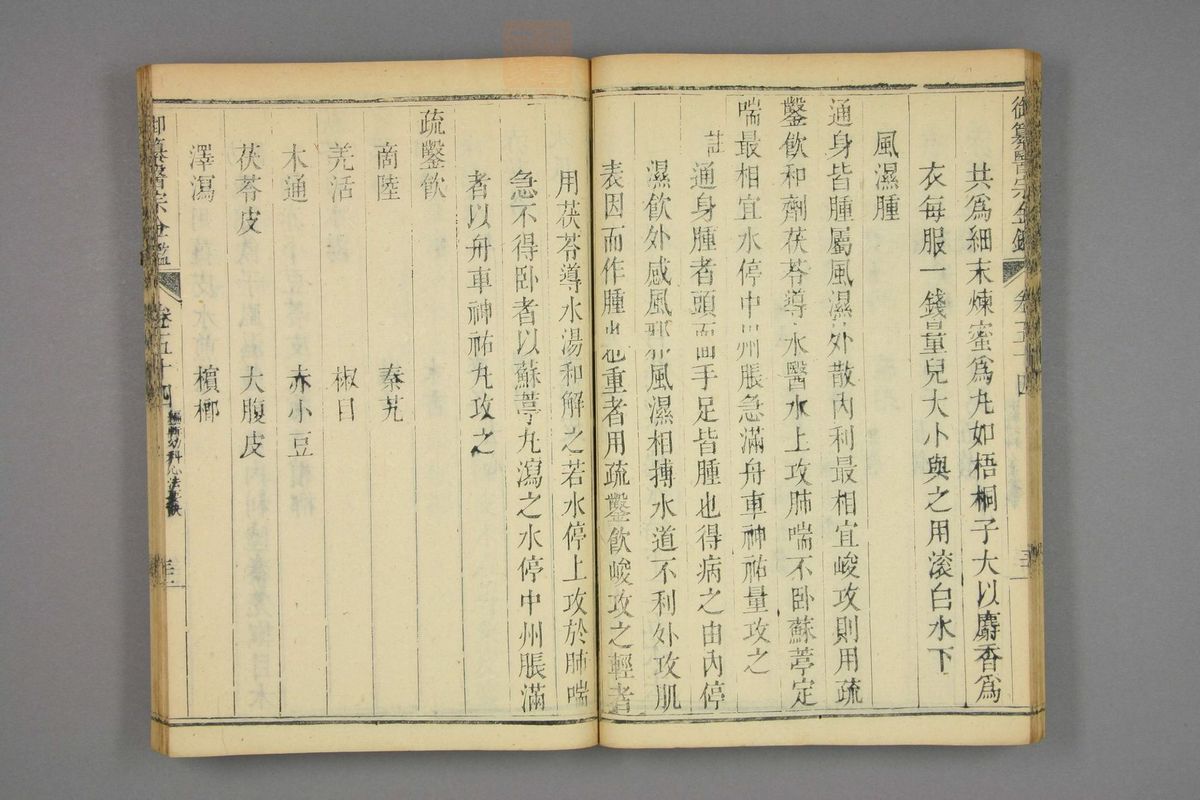 御纂醫宗金鑑 卷五十四
共爲細末煉蜜爲丸如梧桐子大以麝香爲
衣每服一錢量兒大小與之用滾白水下
風濕腫
通身皆腫屬風濕外散內利最相宜峻攻則用疏
鑿飲和劑茯苓導水醫水上攻肺喘不卧蘇葶定
喘最相宜水停中州脹急滿舟車神祐量攻之
註通身腫者頭面手足皆腫也得病之由內停
濕飲外感風邪風濕相搏水道不利外攻肌
表因而作腫也重者用疏鑿飲峻攻之輕者
用茯苓導水湯和解之若水停上攻於肺喘
急不得卧者以蘇葶丸瀉之水停中州脹滿
者以舟車神祐丸攻之
疏鑿飲
商陸 秦艽
羌活 椒目
木通 赤小豆
茯苓皮 大腹皮
澤瀉 檳榔
御纂醫宗金鑑 卷五十四 編輯幼科心法要訣